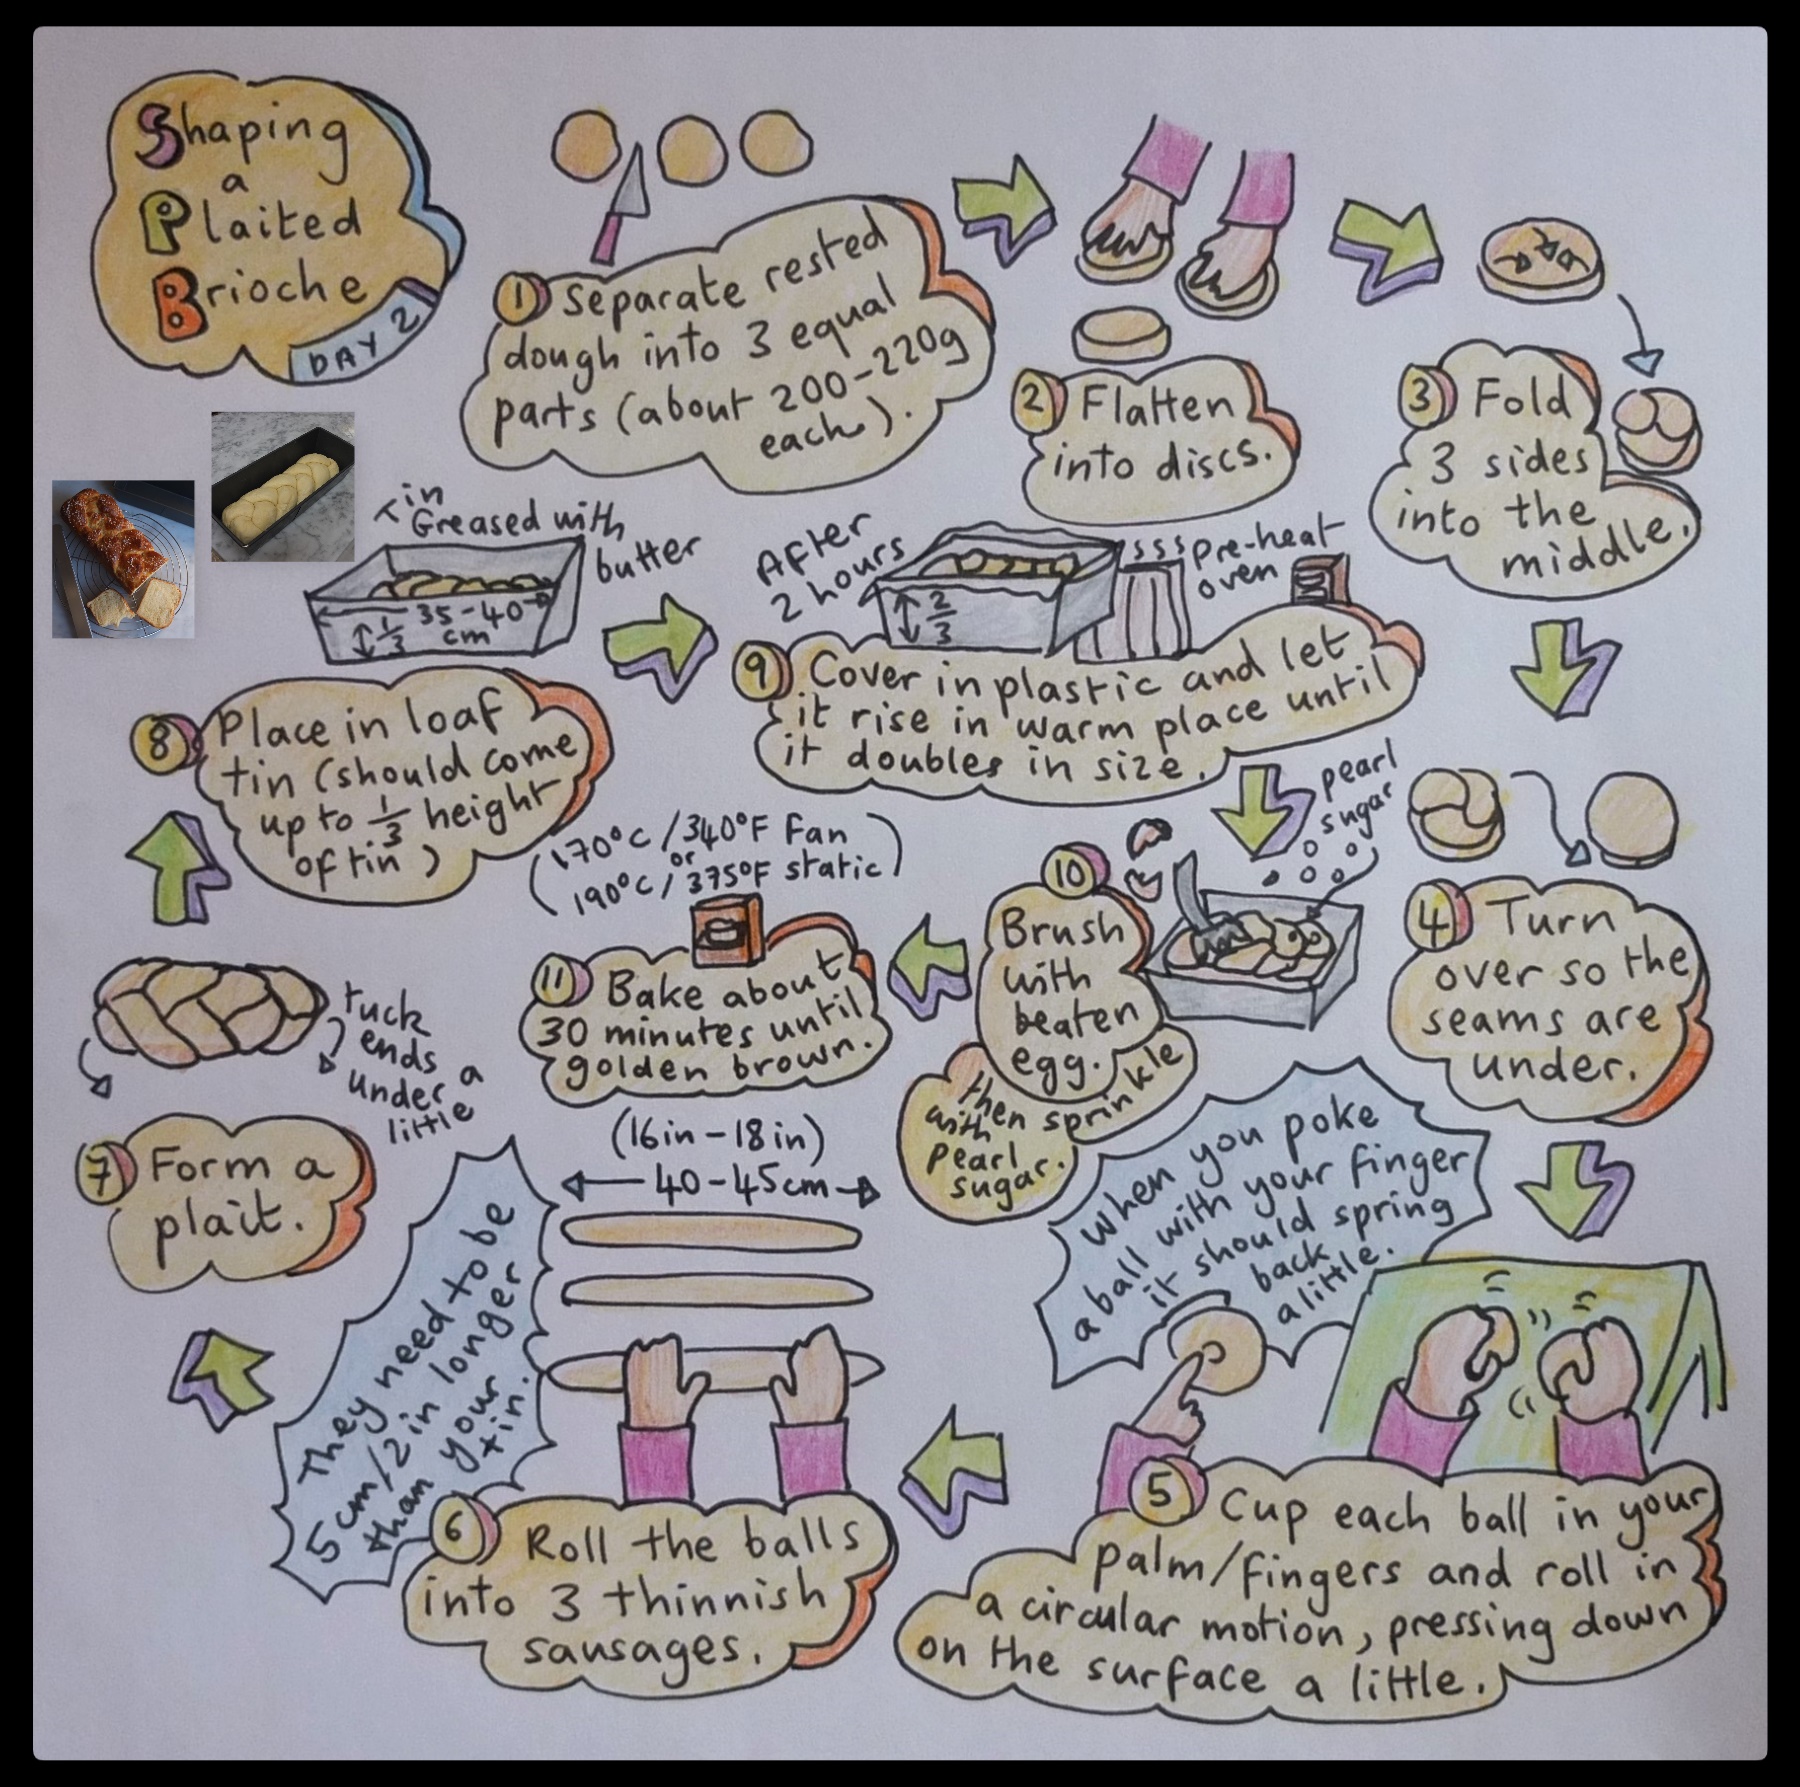 Shaping
a
Plaited
Brioche
DAY 2
1 Separate rested
dough into 3 equal
parts (about 200-220g
each).
2 Flatten
into discs.
3 Fold
3 sides
into the
middle.
4 Turn
over so the
seams are
under.
When you poke
a ball with your finger
it should spring
back
a little.
5 Cup each ball in your
palm/fingers and roll in
a circular motion, pressing down
on the surface a little.
(16in-18in)
40-45cm
They need to be
5cm/2in longer
than your
tin.
6 Roll the balls
into 3 thinnish
sausages.
tuck
ends
under a
little
7 Form a
plait.
Tin
Greased with
butter
35-40
cm
1/3
8 Place in loaf
tin (should come
up to 1/3 height
of tin)
After
2 hours
2/3
sss pre-heat
oven
9 Cover in plastic and let
it rise in warm place until
it doubles in size.
pearl
sugar
10
Brush
with
beaten
egg.
then sprinkle
with
pearl
sugar.
(170°C/340°F fan
or
190°C/375°F static)
11 Bake about
30 minutes until
golden brown.